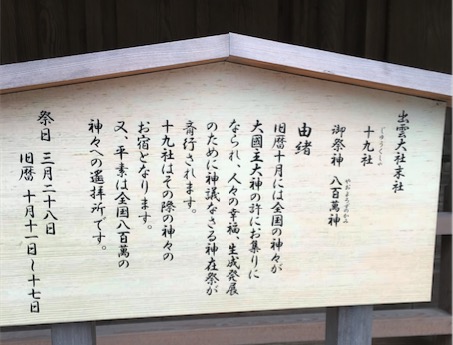 出雲大社末社
十九社
じゅうくしゃ
御祭神 八百萬神
やおよろずのかみ
由緒
旧暦十月には全国の神々が
大國主大神の許にお集りに
なられ、人々の幸福、生成発展
のために神議なさる神在祭が
斎行されます。
十九社はその際の神々の
お宿となります。
又、平素は全国八百萬の
神々への遥拝所です。
祭日 三月二十八日
旧暦 十月十一日~十七日